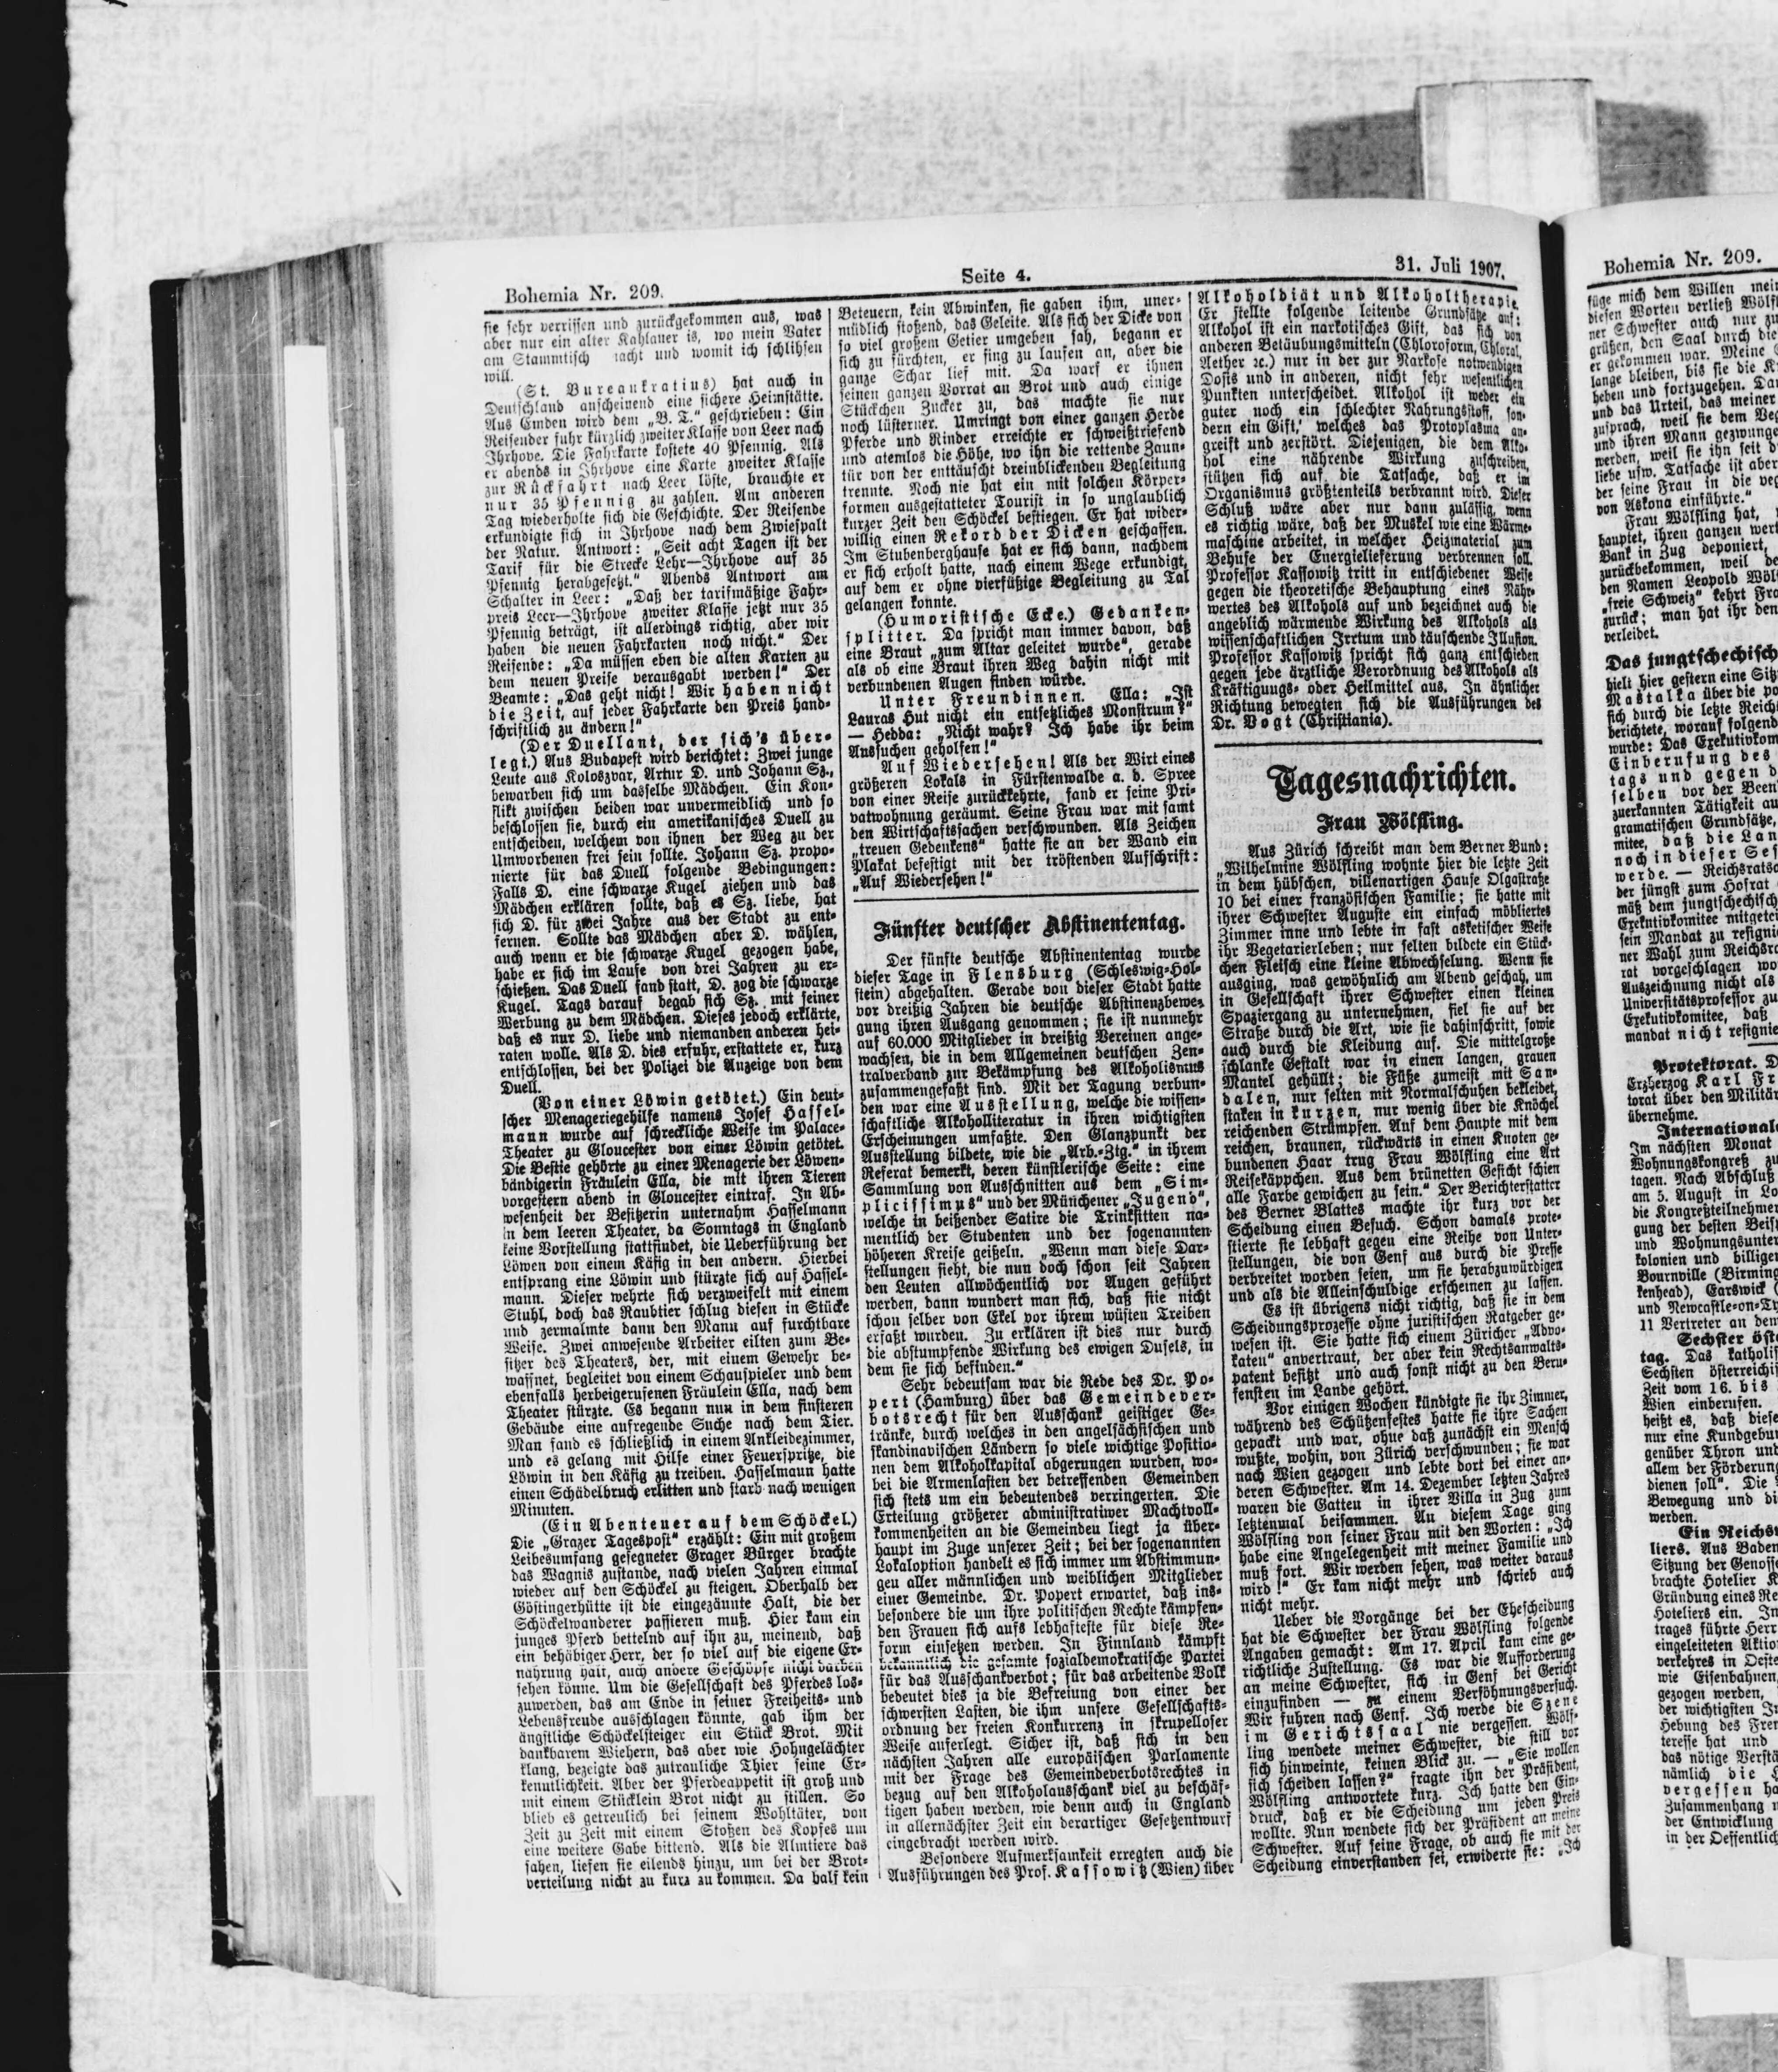 Bohemia Nr. 209.
Seite 4.
31. Juli 1907.
sie sehr verrissen und zurückgekommen aus, was
aber nur ein alter Kahlauer is, wo mein Vater
am Stammtisch macht und womit ich schlihsen
will.
(St. Bureaukratius) hat auch in
Deutschland anscheinend eine sichere Heimstätte.
Aus Emden wird dem „B. T.“ geschrieben: Ein
Reisender fuhr kürzlich zweiter Klasse von Leer nach
Ihrhove. Die Fahrkarte kostete 40 Pfennig. Als
er abends in Ihrhove eine Karte zweiter Klasse
zur Rückfahrt nach Leer löste, brauchte er
nur 35 Pfennig zu zahlen. Am anderen
Tag wiederholte sich die Geschichte. Der Reisende
erkundigte sich in Ihrhove nach dem Zwiespalt
der Natur. Antwort: „Seit acht Tagen ist der
Tarif für die Strecke Lehr—Ihrhove auf 35
Pfennig herabgesetzt.“ Abends Antwort am
Schalter in Leer: „Daß der tarifmäßige Fahr-
preis Leer—Ihrhove zweiter Klasse jetzt nur 35
Pfennig beträgt, ist allerdings richtig, aber wir
haben die neuen Fahrkarten noch nicht.“ Der
Reisende: „Da müssen eben die alten Karten zu
dem neuen Preise verausgabt werden!“ Der
Beamte: „Das geht nicht! Wir haben nicht
die Zeit, auf jeder Fahrkarte den Preis hand-
schriftlich zu ändern!“
(Der Duellant, der sich's über-
legt.) Aus Budapest wird berichtet: Zwei junge
Leute aus Koloszvar, Artur D. und Johann Sz.,
bewarben sich um dasselbe Mädchen. Ein Kon-
flikt zwischen beiden war unvermeidlich und so
beschlossen sie, durch ein ametikanisches Duell zu
entscheiden, welchem von ihnen der Weg zu der
Umworbenen frei sein sollte. Johann Sz. propo-
nierte für das Duell folgende Bedingungen:
Falls D. eine schwarze Kugel ziehen und das
Mädchen erklären sollte, daß es Sz. liebe, hat
sich D. für zwei Jahre aus der Stadt zu ent-
fernen. Sollte das Mädchen aber D. wählen,
auch wenn er die schwarze Kugel gezogen habe,
habe er sich im Laufe von drei Jahren zu er-
schießen. Das Duell fand statt, D. zog die schwarze
Kugel. Tags darauf begab sich Sz. mit seiner
Werbung zu dem Mädchen. Dieses jedoch erklärte,
daß es nur D. liebe und niemanden anderen hei-
raten wolle. Als D. dies erfuhr, erstattete er, kurz
entschlossen, bei der Polizei die Anzeige von dem
Duell.
(Von einer Löwin getötet.) Ein deut-
scher Menageriegehilfe namens Josef Hassel-
mann wurde auf schreckliche Weise im Palace-
Theater zu Gloucester von einer Löwin getötet.
Die Bestie gehörte zu einer Menagerie der Löwen-
bändigerin Fräulein Ella, die mit ihren Tieren
vorgestern abend in Gloucester eintraf. In Ab-
wesenheit der Besitzerin unternahm Hasselmann
in dem leeren Theater, da Sonntags in England
keine Vorstellung stattfindet, die Ueberführung der
Löwen von einem Käfig in den andern. Hierbei
entsprang eine Löwin und stürzte sich auf Hassel-
mann. Dieser wehrte sich verzweifelt mit einem
Stuhl, doch das Raubtier schlug diesen in Stücke
und zermalmte dann den Mann auf furchtbare
Weise. Zwei anwesende Arbeiter eilten zum Be-
sitzer des Theaters, der, mit einem Gewehr be-
waffnet, begleitet von einem Schauspieler und dem
ebenfalls herbeigerufenen Fräulein Ella, nach dem
Theater stürzte. Es begann nun in dem finsteren
Gebäude eine aufregende Suche nach dem Tier.
Man fand es schließlich in einem Ankleidezimmer,
und es gelang mit Hilfe einer Feuerspritze, die
Löwin in den Käfig zu treiben. Hasselmann hatte
einen Schädelbruch erlitten und starb nach wenigen
Minuten.
(Ein Abenteuer auf dem Schöckel.)
Die „Grazer Tagespost“ erzählt: Ein mit großem
Leibesumfang gesegneter Grager Bürger brachte
das Wagnis zustande, nach vielen Jahren einmal
wieder auf den Schöckel zu steigen. Oberhalb der
Göstingerhütte ist die eingezäunte Halt, die der
Schöckelwanderer passieren muß. Hier kam ein
junges Pferd bettelnd auf ihn zu, meinend, daß
ein behäbiger Herr, der so viel auf die eigene Er-
nahrung hält, auch andere Geschöpfe nicht darben
sehen könne. Um die Gesellschaft des Pferdes los-
zuwerden, das am Ende in seiner Freiheits- und
Lebensfreude ausschlagen könnte, gab ihm der
ängstliche Schöckelsteiger ein Stück Brot. Mit
dankbarem Wiehern, das aber wie Hohngelächter
klang, bezeigte das zutrauliche Thier seine Er-
kenntlichkeit. Aber der Pferdeappetit ist groß und
mit einem Stücklein Brot nicht zu stillen. So
blieb es getreulich bei seinem Wohltäter, von
Zeit zu Zeit mit einem Stoßen des Kopfes um
eine weitere Gabe bittend. Als die Almtiere das
sahen, liefen sie eilends hinzu, um bei der Brot-
verteilung nicht zu kurz zu kommen. Da half kein
Beteuern, kein Abwinken, sie gaben ihm, uner-
müdlich stoßend, das Geleite. Als sich der Dicke von
so viel großem Getier umgeben sah, begann er
sich zu fürchten, er fing zu laufen an, aber die
ganze Schar lief mit. Da warf er ihnen
seinen ganzen Vorrat an Brot und auch einige
Stückchen Zucker zu, das machte sie nur
noch lüsterner. Umringt von einer ganzen Herde
Pferde und Rinder erreichte er schweißtriefend
und atemlos die Höhe, wo ihn die rettende Zaun-
tür von der enttäuscht dreinblickenden Begleitung
trennte. Noch nie hat ein mit solchen Körper-
formen ausgestatteter Tourist in so unglaublich
kurzer Zeit den Schöckel bestiegen. Er hat wider-
willig einen Rekord der Dicken geschaffen.
Im Stubenberghause hat er sich dann, nachdem
er sich erholt hatte, nach einem Wege erkundigt,
auf dem er ohne vierfüßige Begleitung zu Tal
gelangen konnte.
(Humoristische Ecke.) Gedanken-
splitter. Da spricht man immer davon, daß
eine Braut „zum Altar geleitet wurde“, gerade
als ob eine Braut ihren Weg dahin nicht mit
verbundenen Augen finden würde.
Unter Freundinnen. Ella: „Ist
Lauras Hut nicht ein entsetzliches Monstrum?“
— Hedda: „Nicht wahr? Ich habe ihr beim
Aussuchen geholfen!“
Auf Wiedersehen! Als der Wirt eines
größeren Lokals in Fürstenwalde a. d. Spree
von einer Reise zurückkehrte, fand er seine Pri-
vatwohnung geräumt. Seine Frau war mit samt
den Wirtschaftssachen verschwunden. Als Zeichen
„treuen Gedenkens“ hatte sie an der Wand ein
Plakat befestigt mit der tröstenden Aufschrift:
„Auf Wiedersehen!“
Fünfter deutscher Abstinententag.
Der fünfte deutsche Abstinententag wurde
dieser Tage in Flensburg (Schleswig-Hol-
stein) abgehalten. Gerade von dieser Stadt hatte
vor dreißig Jahren die deutsche Abstinenzbewe-
gung ihren Ausgang genommen; sie ist nunmehr
auf 60.000 Mitglieder in dreißig Vereinen ange-
wachsen, die in dem Allgemeinen deutschen Zen-
tralverband zur Bekämpfung des Alkoholismus
zusammengefaßt sind. Mit der Tagung verbun-
den war eine Ausstellung, welche die wissen-
schaftliche Alkoholliteratur in ihren wichtigsten
Erscheinungen umfaßte. Den Glanzpunkt der
Ausstellung bildete, wie die „Arb.-Ztg.“ in ihrem
Referat bemerkt, deren künstlerische Seite: eine
Sammlung von Ausschnitten aus dem „Sim-
plicissimus“ und der Münchener „Jugend“,
welche in beißender Satire die Trinksitten na-
mentlich der Studenten und der sogenannten
höheren Kreise geißeln. „Wenn man diese Dar-
stellungen sieht, die nun doch schon seit Jahren
den Leuten allwöchentlich vor Augen geführt
werden, dann wundert man sich, daß stie nicht
schon selber von Ekel vor ihrem wüsten Treiben
erfaßt wurden. Zu erklären ist dies nur durch
die abstumpfende Wirkung des ewigen Dusels, in
dem sie sich befinden.“
Sehr bedeutsam war die Rede des Dr. Po-
pert (Hamburg) über das Gemeindever-
botsrecht für den Ausschank geistiger Ge-
tränke, durch welches in den angelsächsischen und
skandinavischen Ländern so viele wichtige Positio-
nen dem Alkoholkapital abgerungen wurden, wo-
bei die Armenlasten der betreffenden Gemeinden
sich stets um ein bedeutendes verringerten. Die
Erteilung größerer administrativer Machtvoll-
kommenheiten an die Gemeinden liegt ja über-
haupt im Zuge unserer Zeit; bei der sogenannten
Lokaloption handelt es sich immer um Abstimmun-
gen aller männlichen und weiblichen Mitglieder
einer Gemeinde. Dr. Popert erwartet, daß ins-
besondere die um ihre politischen Rechte kämpfen-
den Frauen sich aufs lebhafteste für diese Re-
form einsetzen werden. In Finnland kämpft
bekanntlich die gesamte sozialdemokratische Partei
für das Ausschankverbot; für das arbeitende Volk
bedeutet dies ja die Befreiung von einer der
schwersten Lasten, die ihm unsere Gesellschafts-
ordnung der freien Konkurrenz in skrupelloser
Weise auferlegt. Sicher ist, daß sich in den
nächsten Jahren alle europäischen Parlamente
mit der Frage des Gemeindeverbotsrechtes in
bezug auf den Alkoholausschank viel zu beschäf-
tigen haben werden, wie denn auch in England
in allernächster Zeit ein derartiger Gesetzentwurf
eingebracht werden wird.
Besondere Aufmerksamkeit erregten auch die
Ausführungen des Prof. Kassowitz (Wien) über
Alkoholdiät und Alkoholtherapie.
Er stellte folgende leitende Grundsätze auf:
Alkohol ist ein narkotisches Gift, das sich von
anderen Betäubungsmitteln (Chloroform, Chloral,
Aether 2c.) nur in der zur Narkose notwendigen
Dosis und in anderen, nicht sehr wesentlichen
Punkten unterscheidet. Alkohol ist weder ein
guter noch ein schlechter Nahrungsstoff, son-
dern ein Gift, welches das Protoplasma an-
greift und zerstört. Diejenigen, die dem Alko-
hol eine nährende Wirkung zuschreiben,
stützen sich auf die Tatsache, daß er im
Organismus größtenteils verbrannt wird. Dieser
Schluß wäre aber nur dann zulässig, wenn
es richtig wäre, daß der Muskel wie eine Wärme-
maschine arbeitet, in welcher Heizmaterial zum
Behufe der Energielieferung verbrennen soll.
Professor Kassowitz tritt in entschiedener Weise
gegen die theoretische Behauptung eines Nähr-
wertes des Alkohols auf und bezeichnet auch die
angeblich wärmende Wirkung des Alkohols als
wissenschaftlichen Irrtum und täuschende Illusion.
Professor Kassowitz spricht sich ganz entschieden
gegen jede ärztliche Verordnung des Alkohols als
Kräftigungs- oder Heilmittel aus. In ähnlicher
Richtung bewegten sich die Ausführungen des
Dr. Vogt (Christiania).
Tagesnachrichten.
Frau Wölfling.
Aus Zürich schreibt man dem Berner Bund:
„Wilhelmine Wölfling wohnte hier die letzte Zeit
in dem hübschen, villenartigen Hause Olgastraße
10 bei einer französischen Familie; sie hatte mit
ihrer Schwester Auguste ein einfach möbliertes
Zimmer inne und lebte in fast asketischer Weise
ihr Vegetarierleben; nur selten bildete ein Stück-
chen Fleisch eine kleine Abwechselung. Wenn sie
ausging, was gewöhnlich am Abend geschah, um
in Gesellschaft ihrer Schwester einen kleinen
Spaziergang zu unternehmen, fiel sie auf der
Straße durch die Art, wie sie dahinschritt, sowie
auch durch die Kleidung auf. Die mittelgroße
schlanke Gestalt war in einen langen, grauen
Mantel gehüllt; die Füße zumeist mit San-
dalen, nur selten mit Normalschuhen bekleidet,
staken in kurzen, nur wenig über die Knöchel
reichenden Strümpfen. Auf dem Haupte mit dem
reichen, braunen, rückwärts in einen Knoten ge-
bundenen Haar trug Frau Wölfling eine Art
Reisekäppchen. Aus dem brünetten Gesicht schien
alle Farbe gewichen zu sein.“ Der Berichterstatter
des Berner Blattes machte ihr kurz vor der
Scheidung einen Besuch. Schon damals prote-
stierte sie lebhaft gegen eine Reihe von Unter-
stellungen, die von Genf aus durch die Presse
verbreitet worden seien, um sie herabzuwürdigen
und als die Alleinschuldige erscheinen zu lassen.
Es ist übrigens nicht richtig, daß sie in dem
Scheidungsprozesse ohne juristischen Ratgeber ge-
wesen ist. Sie hatte sich einem Züricher „Advo-
katen“ anvertraut, der aber kein Rechtsanwalts-
patent besitzt und auch sonst nicht zu den Beru-
fensten im Lande gehört.
Vor einigen Wochen kündigte sie ihr Zimmer,
während des Schützenfestes hatte sie ihre Sachen
gepackt und war, ohne daß zunächst ein Mensch
wußte, wohin, von Zürich verschwunden; sie war
nach Wien gezogen und lebte dort bei einer an-
deren Schwester. Am 14. Dezember letzten Jahres
waren die Gatten in ihrer Villa in Zug zum
letztenmal beisammen. An diesem Tage ging
Wölfling von seiner Frau mit den Worten: „Ich
habe eine Angelegenheit mit meiner Familie und
muß fort. Wir werden sehen, was weiter daraus
wird!“ Er kam nicht mehr und schrieb auch
nicht mehr.
Ueber die Vorgänge bei der Ehescheidung
hat die Schwester der Frau Wölfling folgende
Angaben gemacht: Am 17. April kam eine ge-
richtliche Zustellung. Es war die Aufforderung
an meine Schwester, sich in Genf bei Gericht
einzufinden — zu einem Versöhnungsversuch.
Wir fuhren nach Genf. Ich werde die Szene
im Gerichtssaal nie vergessen. Wölf-
ling wendete meiner Schwester, die still vor
sich hinweinte, keinen Blick zu. — „Sie wollen
sich scheiden lassen?“ fragte ihn der Präsident,
Wölfling antwortete kurz. Ich hatte den Ein-
druck, daß er die Scheidung um jeden Preis
wollte. Nun wendete sich der Präsident an meine
Schwester. Auf seine Frage, ob auch sie mit der
Scheidung einverstanden sei, erwiderte sie: „Ich
Bohemia Nr. 209.
füge mich dem Willen mein
diesen Worten verließ Wölfl
ner Schwester auch nur zu
grüßen, den Saal durch die
er gekommen war. Meine
lange bleiben, bis sie die K
heben und fortzugehen. Da
und das Urteil, das meiner
zusprach, weil sie dem Veg
und ihren Mann gezwunge
werden, weil sie ihn seit d
liebe usw. Tatsache ist aber
der seine Frau in die veg
von Askona einführte.“
Frau Wölfling hat,
hauptet, ihren ganzen wert
Bank in Zug deponiert,
zurückbekommen, weil de
den Namen Leopold Wöl
„freie Schweiz“ kehrt Fra
zurück; man hat ihr den
verleidet.
Das jungtschechisch
hielt hier gestern eine Sitz
Mastalka über die po
sich durch die letzte Reich
berichtete, worauf folgend
wurde: Das Exekutivkom
Einberufung des
tags und gegen d
selben vor der Been
zuerkannten Tätigkeit au
gramatischen Grundsätze,
mitee, daß die Lan
noch in dieser Ses
werde. — Reichsratsa
der jüngst zum Hofrat
mäß dem jungtschechisch
Exekutivkomitee mitgetei
sein Mandat zu resignie
ner Wahl zum Reichsra
rat vorgeschlagen wo
Auszeichnung nicht als
Universitätsprofessor zu
Exekutivkomitee, daß
mandat nicht resignie
Protektorat. D
Erzherzog Karl Fr
torat über den Militär
übernehme.
International
Im nächsten Monat
Wohnungskongreß zu
tagen. Nach Abschluß
am 5. August in Lo
die Kongreßteilnehmer
gung der besten Beisp
und Wohnungsunter
kolonien und billiger
Bournville (Birming
kenhead), Earswick (
und Newcastle-on-Ty
11 Vertreter an dem
Sechster öste
tag. Das katholis
Sechsten österreichis
Zeit vom 16. bis
Wien einberufen.
heißt es, daß diese
nur eine Kundgebun
genüber Thron und
allem der Förderung
dienen soll“. Die
Bewegung und di
werden.
Ein Reichs
liers. Aus Baden
Sitzung der Genosse
brachte Hotelier K
Gründung eines Re
Hoteliers ein. In
trages führte Herr
eingeleiteten Aktio
verkehres in Oeste
wie Eisenbahnen,
gezogen werden,
der wichtigsten In
Hebung des Frem
teresse hat und
das nötige Verstä
nämlich die H
vergessen ha
Zusammenhang m
der Entwicklung
in der Oeffentlich